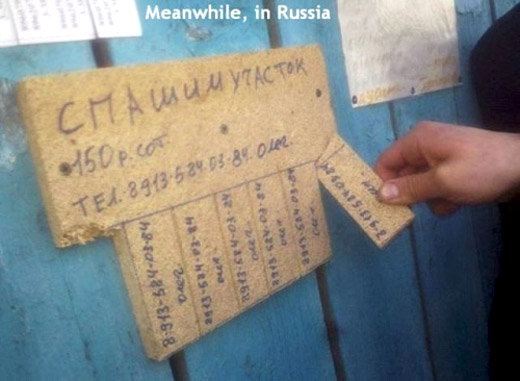 Meanwhile, in Russia
СПАШИМ УЧАСТОК
150 р. сот.
ТЕЛ. 8913-584-03-84. Олег.
8-913-584-03-84
Олег.
8913-584-03-84
Олег.
8913-584-03-84
Олег
8913-584-03-84
Олег
8913-584-03-84
Олег